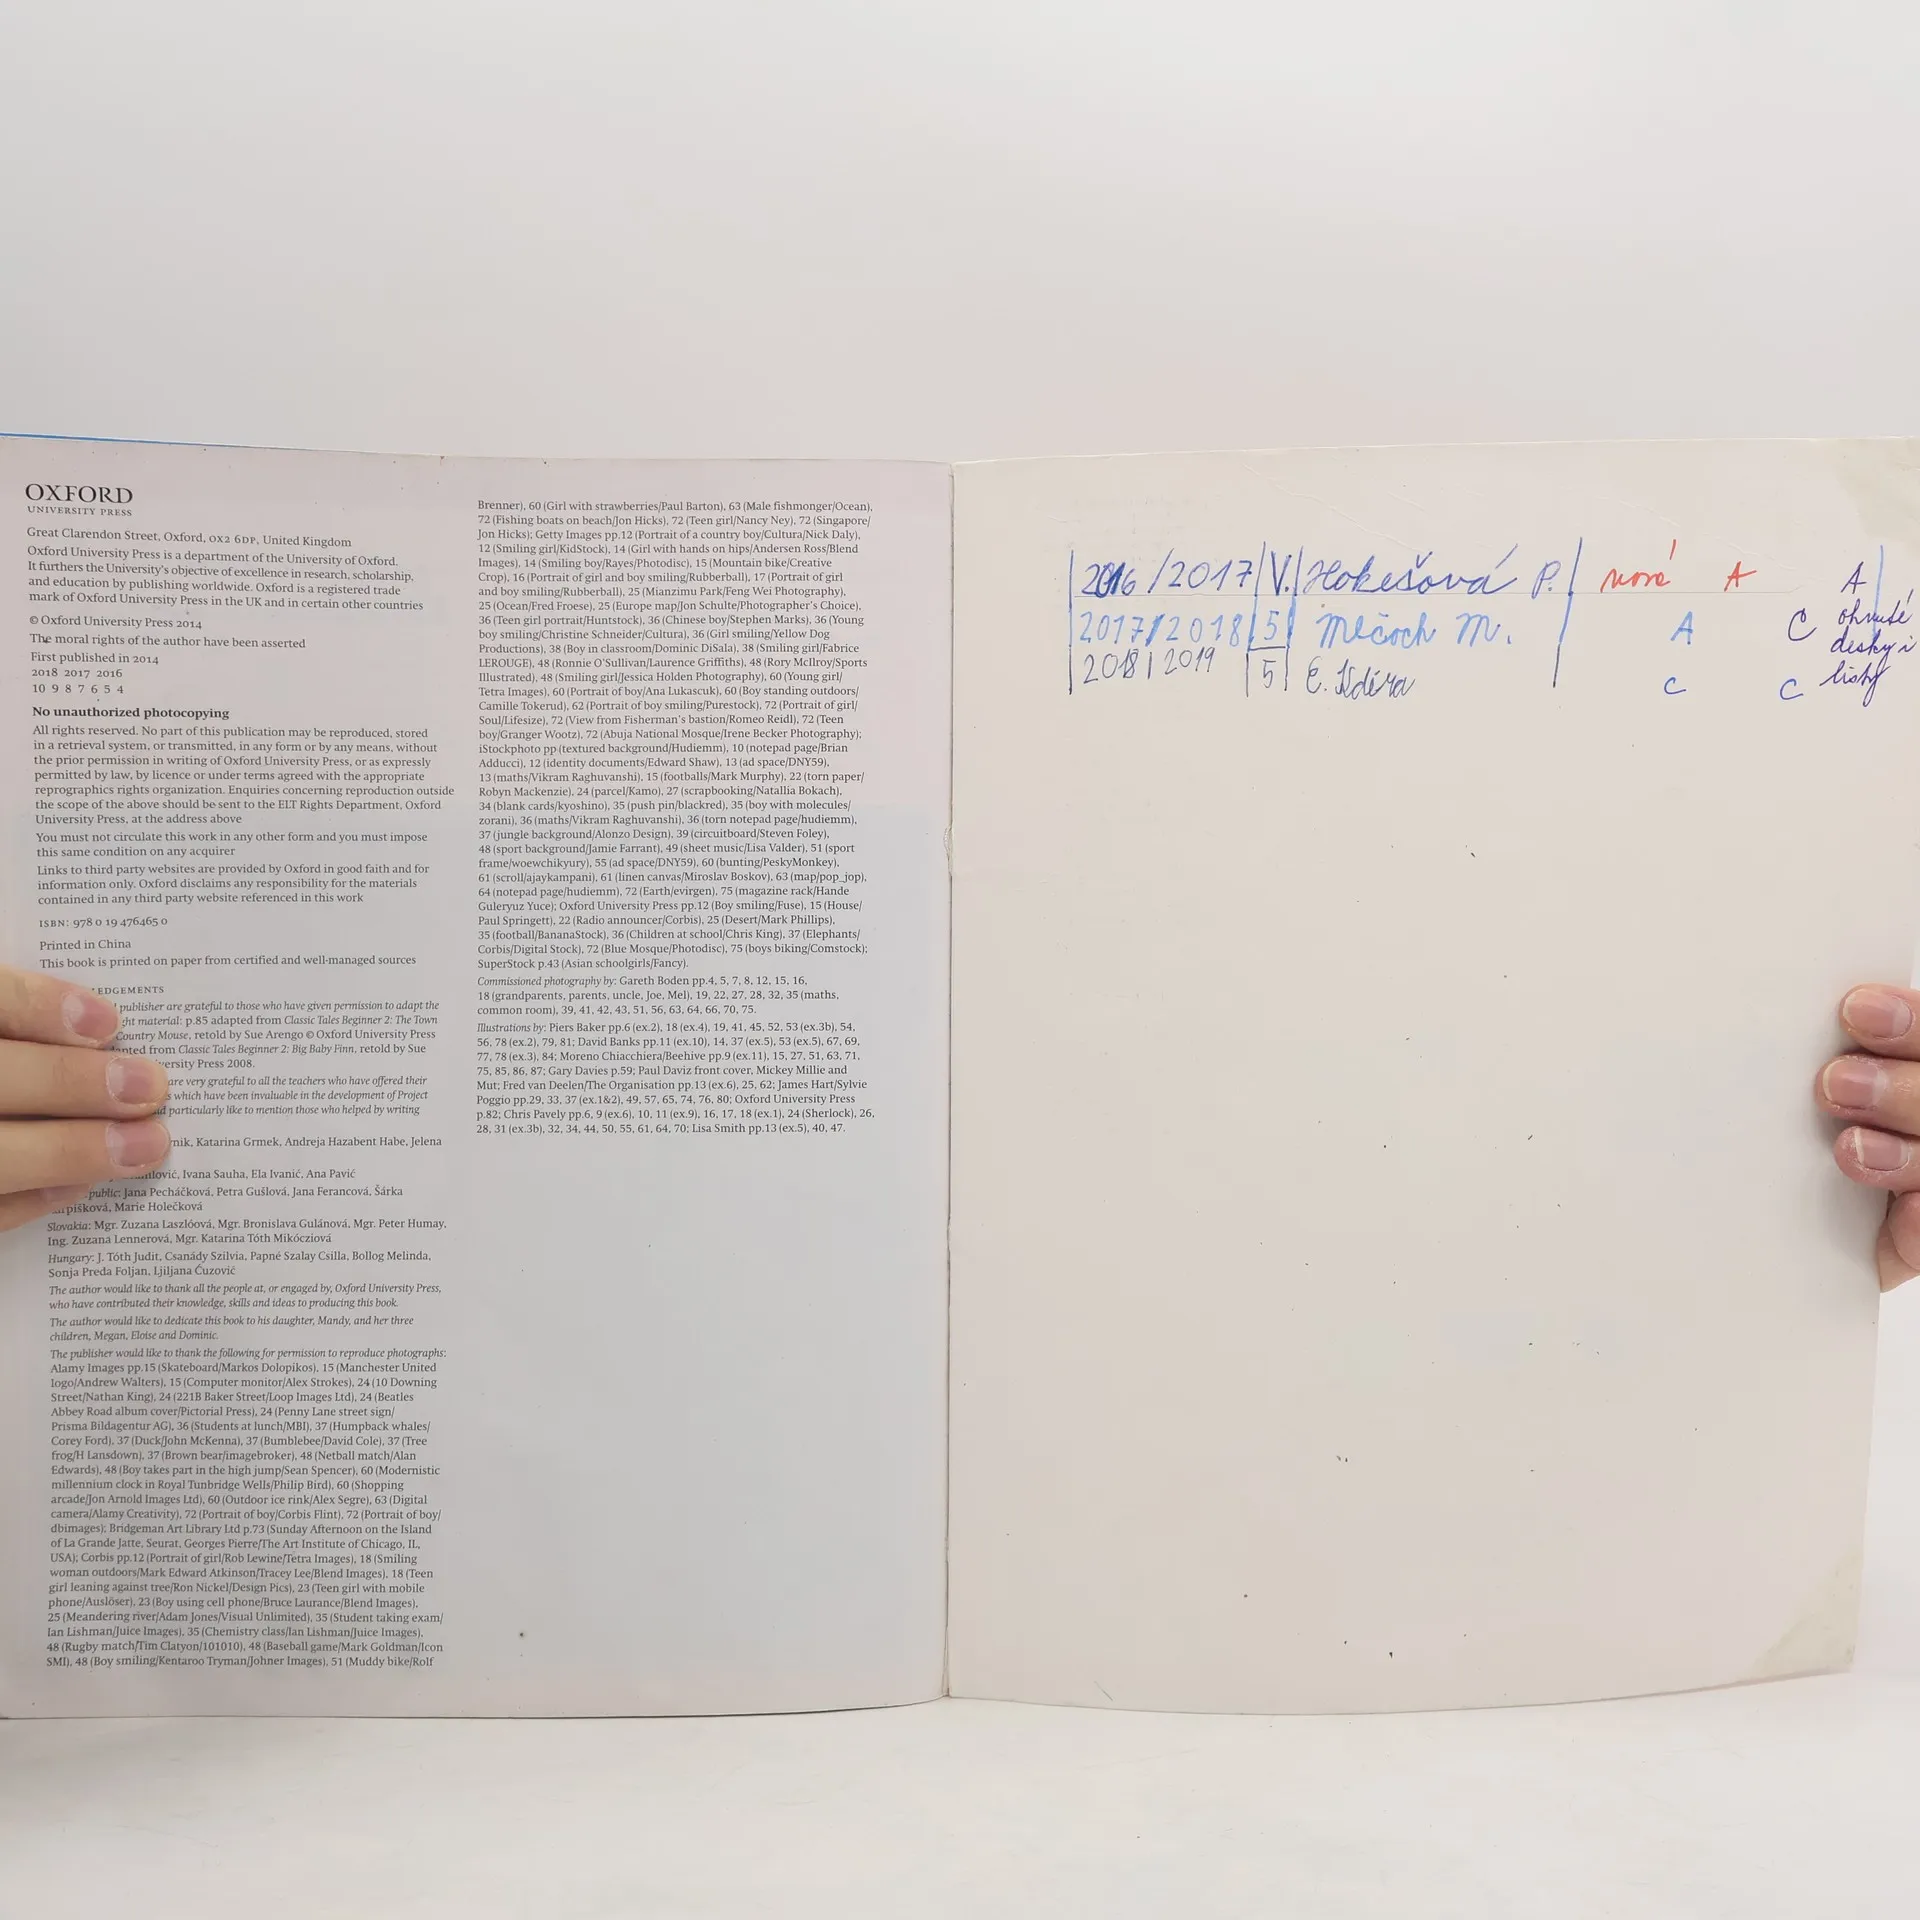 OXFORD
UNIVERSITY PRESS
Great Clarendon Street, Oxford, OX2 6DP, United Kingdom
Oxford University Press is a department of the University of Oxford.
It furthers the University's objective of excellence in research, scholarship,
and education by publishing worldwide. Oxford is a registered trade
mark of Oxford University Press in the UK and in certain other countries
© Oxford University Press 2014
The moral rights of the author have been asserted
First published in 2014
2018 2017 2016
10 9 8 7 6 5 4
No unauthorized photocopying
All rights reserved. No part of this publication may be reproduced, stored
in a retrieval system, or transmitted, in any form or by any means, without
the prior permission in writing of Oxford University Press, or as expressly
permitted by law, by licence or under terms agreed with the appropriate
reprographics rights organization. Enquiries concerning reproduction outside
the scope of the above should be sent to the ELT Rights Department, Oxford
University Press, at the address above
You must not circulate this work in any other form and you must impose
this same condition on any acquirer
Links to third party websites are provided by Oxford in good faith and for
information only. Oxford disclaims any responsibility for the materials
contained in any third party website referenced in this work
ISBN: 978 0 19 476465 0
Printed in China
This book is printed on paper from certified and well-managed sources
publisher are grateful to those who have given permission to adapt the
material: p.85 adapted from Classic Tales Beginner 2: The Town
Country Mouse, retold by Sue Arengo © Oxford University Press
from Classic Tales Beginner 2: Big Baby Finn, retold by Sue
Press 2008.
are very grateful to all the teachers who have offered their
which have been invaluable in the development of Project
particularly like to mention those who helped by writing
Katarina Grmek, Andreja Hazabent Habe, Jelena
Ivana Sauha, Ela Ivanić, Ana Pavić
Jana Pecháčková, Petra Gušlová, Jana Ferancová, Šárka
Marie Holečková
Slovakia: Mgr. Zuzana Laszlóová, Mgr. Bronislava Gulánová, Mgr. Peter Humay,
Ing. Zuzana Lennerová, Mgr. Katarina Tóth Mikócziová
Hungary: J. Tóth Judit, Csanády Szilvia, Papné Szalay Csilla, Bollog Melinda,
Sonja Preda Foljan, Ljiljana Ćuzović
The author would like to thank all the people at, or engaged by, Oxford University Press,
who have contributed their knowledge, skills and ideas to producing this book.
The author would like to dedicate this book to his daughter, Mandy, and her three
children, Megan, Eloise and Dominic.
The publisher would like to thank the following for permission to reproduce photographs:
Alamy Images pp.15 (Skateboard/Markos Dolopikos), 15 (Manchester United
logo/Andrew Walters), 15 (Computer monitor/Alex Strokes), 24 (10 Downing
Street/Nathan King), 24 (221B Baker Street/Loop Images Ltd), 24 (Beatles
Abbey Road album cover/Pictorial Press), 24 (Penny Lane street sign/
Prisma Bildagentur AG), 36 (Students at lunch/MBI), 37 (Humpback whales/
Corey Ford), 37 (Duck/John McKenna), 37 (Bumblebee/David Cole), 37 (Tree
frog/H Lansdown), 37 (Brown bear/imagebroker), 48 (Netball match/Alan
Edwards), 48 (Boy takes part in the high jump/Sean Spencer), 60 (Modernistic
millennium clock in Royal Tunbridge Wells/Philip Bird), 60 (Shopping
arcade/Jon Arnold Images Ltd), 60 (Outdoor ice rink/Alex Segre), 63 (Digital
camera/Alamy Creativity), 72 (Portrait of boy/Corbis Flint), 72 (Portrait of boy/
dbimages); Bridgeman Art Library Ltd p.73 (Sunday Afternoon on the Island
of La Grande Jatte, Seurat, Georges Pierre/The Art Institute of Chicago, IL,
USA); Corbis pp.12 (Portrait of girl/Rob Lewine/Tetra Images), 18 (Smiling
woman outdoors/Mark Edward Atkinson/Tracey Lee/Blend Images), 18 (Teen
girl leaning against tree/Ron Nickel/Design Pics), 23 (Teen girl with mobile
phone/Auslöser), 23 (Boy using cell phone/Bruce Laurance/Blend Images),
25 (Meandering river/Adam Jones/Visual Unlimited), 35 (Student taking exam/
Ian Lishman/Juice Images), 35 (Chemistry class/Ian Lishman/Juice Images),
48 (Rugby match/Tim Clatyon/101010), 48 (Baseball game/Mark Goldman/Icon
SMI), 48 (Boy smiling/Kentaroo Tryman/Johner Images), 51 (Muddy bike/Rolf
Brenner), 60 (Girl with strawberries/Paul Barton), 63 (Male fishmonger/Ocean),
72 (Fishing boats on beach/Jon Hicks), 72 (Teen girl/Nancy Ney), 72 (Singapore/
Jon Hicks); Getty Images pp.12 (Portrait of a country boy/Cultura/Nick Daly),
12 (Smiling girl/KidStock), 14 (Girl with hands on hips/Andersen Ross/Blend
Images), 14 (Smiling boy/Rayes/Photodisc), 15 (Mountain bike/Creative
Crop), 16 (Portrait of girl and boy smiling/Rubberball), 17 (Portrait of girl
and boy smiling/Rubberball), 25 (Mianzimu Park/Feng Wei Photography),
25 (Ocean/Fred Froese), 25 (Europe map/Jon Schulte/Photographer's Choice),
36 (Teen girl portrait/Huntstock), 36 (Chinese boy/Stephen Marks), 36 (Young
boy smiling/Christine Schneider/Cultura), 36 (Girl smiling/Yellow Dog
Productions), 38 (Boy in classroom/Dominic DiSala), 38 (Smiling girl/Fabrice
LEROUGE), 48 (Ronnie O'Sullivan/Laurence Griffiths), 48 (Rory McIlroy/Sports
Illustrated), 48 (Smiling girl/Jessica Holden Photography), 60 (Young girl/
Tetra Images), 60 (Portrait of boy/Ana Lukascuk), 60 (Boy standing outdoors/
Camille Tokerud), 62 (Portrait of boy smiling/Purestock), 72 (Portrait of girl/
Soul/Lifesize), 72 (View from Fisherman's bastion/Romeo Reidl), 72 (Teen
boy/Granger Wootz), 72 (Abuja National Mosque/Irene Becker Photography);
iStockphoto pp (textured background/Hudiemm), 10 (notepad page/Brian
Adducci), 12 (identity documents/Edward Shaw), 13 (ad space/DNY59),
13 (maths/Vikram Raghuvanshi), 15 (footballs/Mark Murphy), 22 (torn paper/
Robyn Mackenzie), 24 (parcel/Kamo), 27 (scrapbooking/Natallia Bokach),
34 (blank cards/kyoshino), 35 (push pin/blackred), 35 (boy with molecules/
zorani), 36 (maths/Vikram Raghuvanshi), 36 (torn notepad page/hudiemm),
37 (jungle background/Alonzo Design), 39 (circuitboard/Steven Foley),
48 (sport background/Jamie Farrant), 49 (sheet music/Lisa Valder), 51 (sport
frame/woewchikyury), 55 (ad space/DNY59), 60 (bunting/PeskyMonkey),
61 (scroll/ajaykampani), 61 (linen canvas/Miroslav Boskov), 63 (map/pop_jop),
64 (notepad page/hudiemm), 72 (Earth/evirgen), 75 (magazine rack/Hande
Guleryuz Yuce); Oxford University Press pp.12 (Boy smiling/Fuse), 15 (House/
Paul Springett), 22 (Radio announcer/Corbis), 25 (Desert/Mark Phillips),
35 (football/BananaStock), 36 (Children at school/Chris King), 37 (Elephants/
Corbis/Digital Stock), 72 (Blue Mosque/Photodisc), 75 (boys biking/Comstock);
SuperStock p.43 (Asian schoolgirls/Fancy).
Commissioned photography by: Gareth Boden pp.4, 5, 7, 8, 12, 15, 16,
18 (grandparents, parents, uncle, Joe, Mel), 19, 22, 27, 28, 32, 35 (maths,
common room), 39, 41, 42, 43, 51, 56, 63, 64, 66, 70, 75.
Illustrations by: Piers Baker pp.6 (ex.2), 18 (ex.4), 19, 41, 45, 52, 53 (ex.3b), 54,
56, 78 (ex.2), 79, 81; David Banks pp.11 (ex.10), 14, 37 (ex.5), 53 (ex.5), 67, 69,
77, 78 (ex.3), 84; Moreno Chiacchiera/Beehive pp.9 (ex.11), 15, 27, 51, 63, 71,
75, 85, 86, 87; Gary Davies p.59; Paul Daviz front cover, Mickey Millie and
Mut; Fred van Deelen/The Organisation pp.13 (ex.6), 25, 62; James Hart/Sylvie
Poggio pp.29, 33, 37 (ex.1&2), 49, 57, 65, 74, 76, 80; Oxford University Press
p.82; Chris Pavely pp.6, 9 (ex.6), 10, 11 (ex.9), 16, 17, 18 (ex.1), 24 (Sherlock), 26,
28, 31 (ex.3b), 32, 34, 44, 50, 55, 61, 64, 70; Lisa Smith pp.13 (ex.5), 40, 47.
2016/2017 V. Hokešová P. nová A A
2017/2018 5 Mlčoch M. A C ohnuté
desky i
2018/2019 5 E. Kdýra C C listy